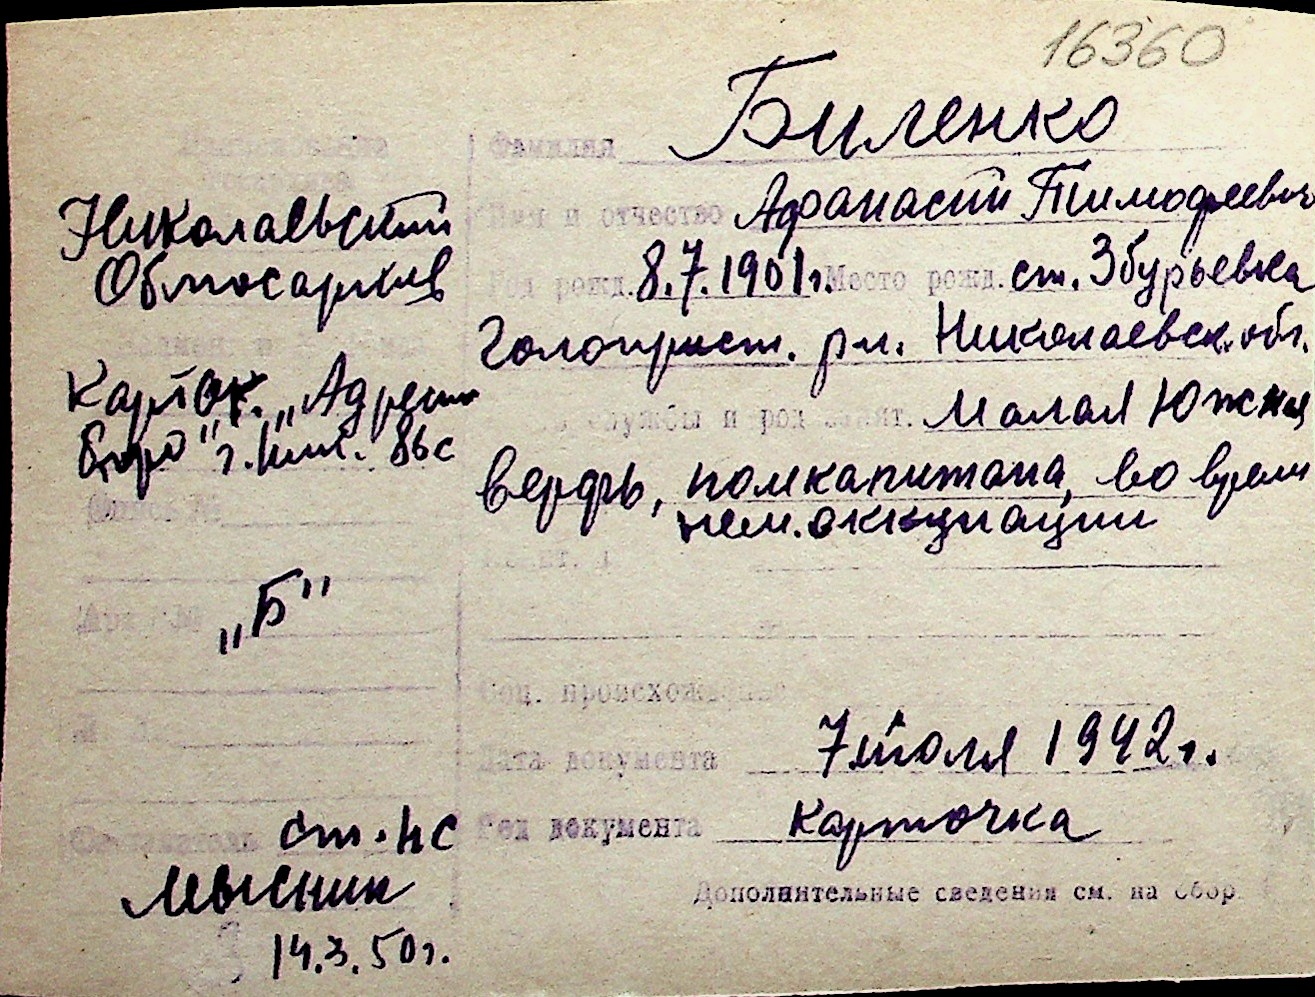 16360
Фамилия Биленко
Имя и отчество Афанасий Тимофеевич
Год рожд. 8.7.1901г. Место рожд. ст. Збурьевка
Голоприст. р-н. Николаевск. обл.
службы и род занят. Малая Южная
верфь, помкапитана, во время
нем. оккупации
Соц. происхождение
Дата документа 7 июля 1942 г.
Род документа карточка
Дополнительные сведения см. на обор.
Николаевский
Облгосархив
Картот. „Адресн
бюро" г. Ник.
Опись №
„Б"
Составитель ст. нс
14.3.50г.